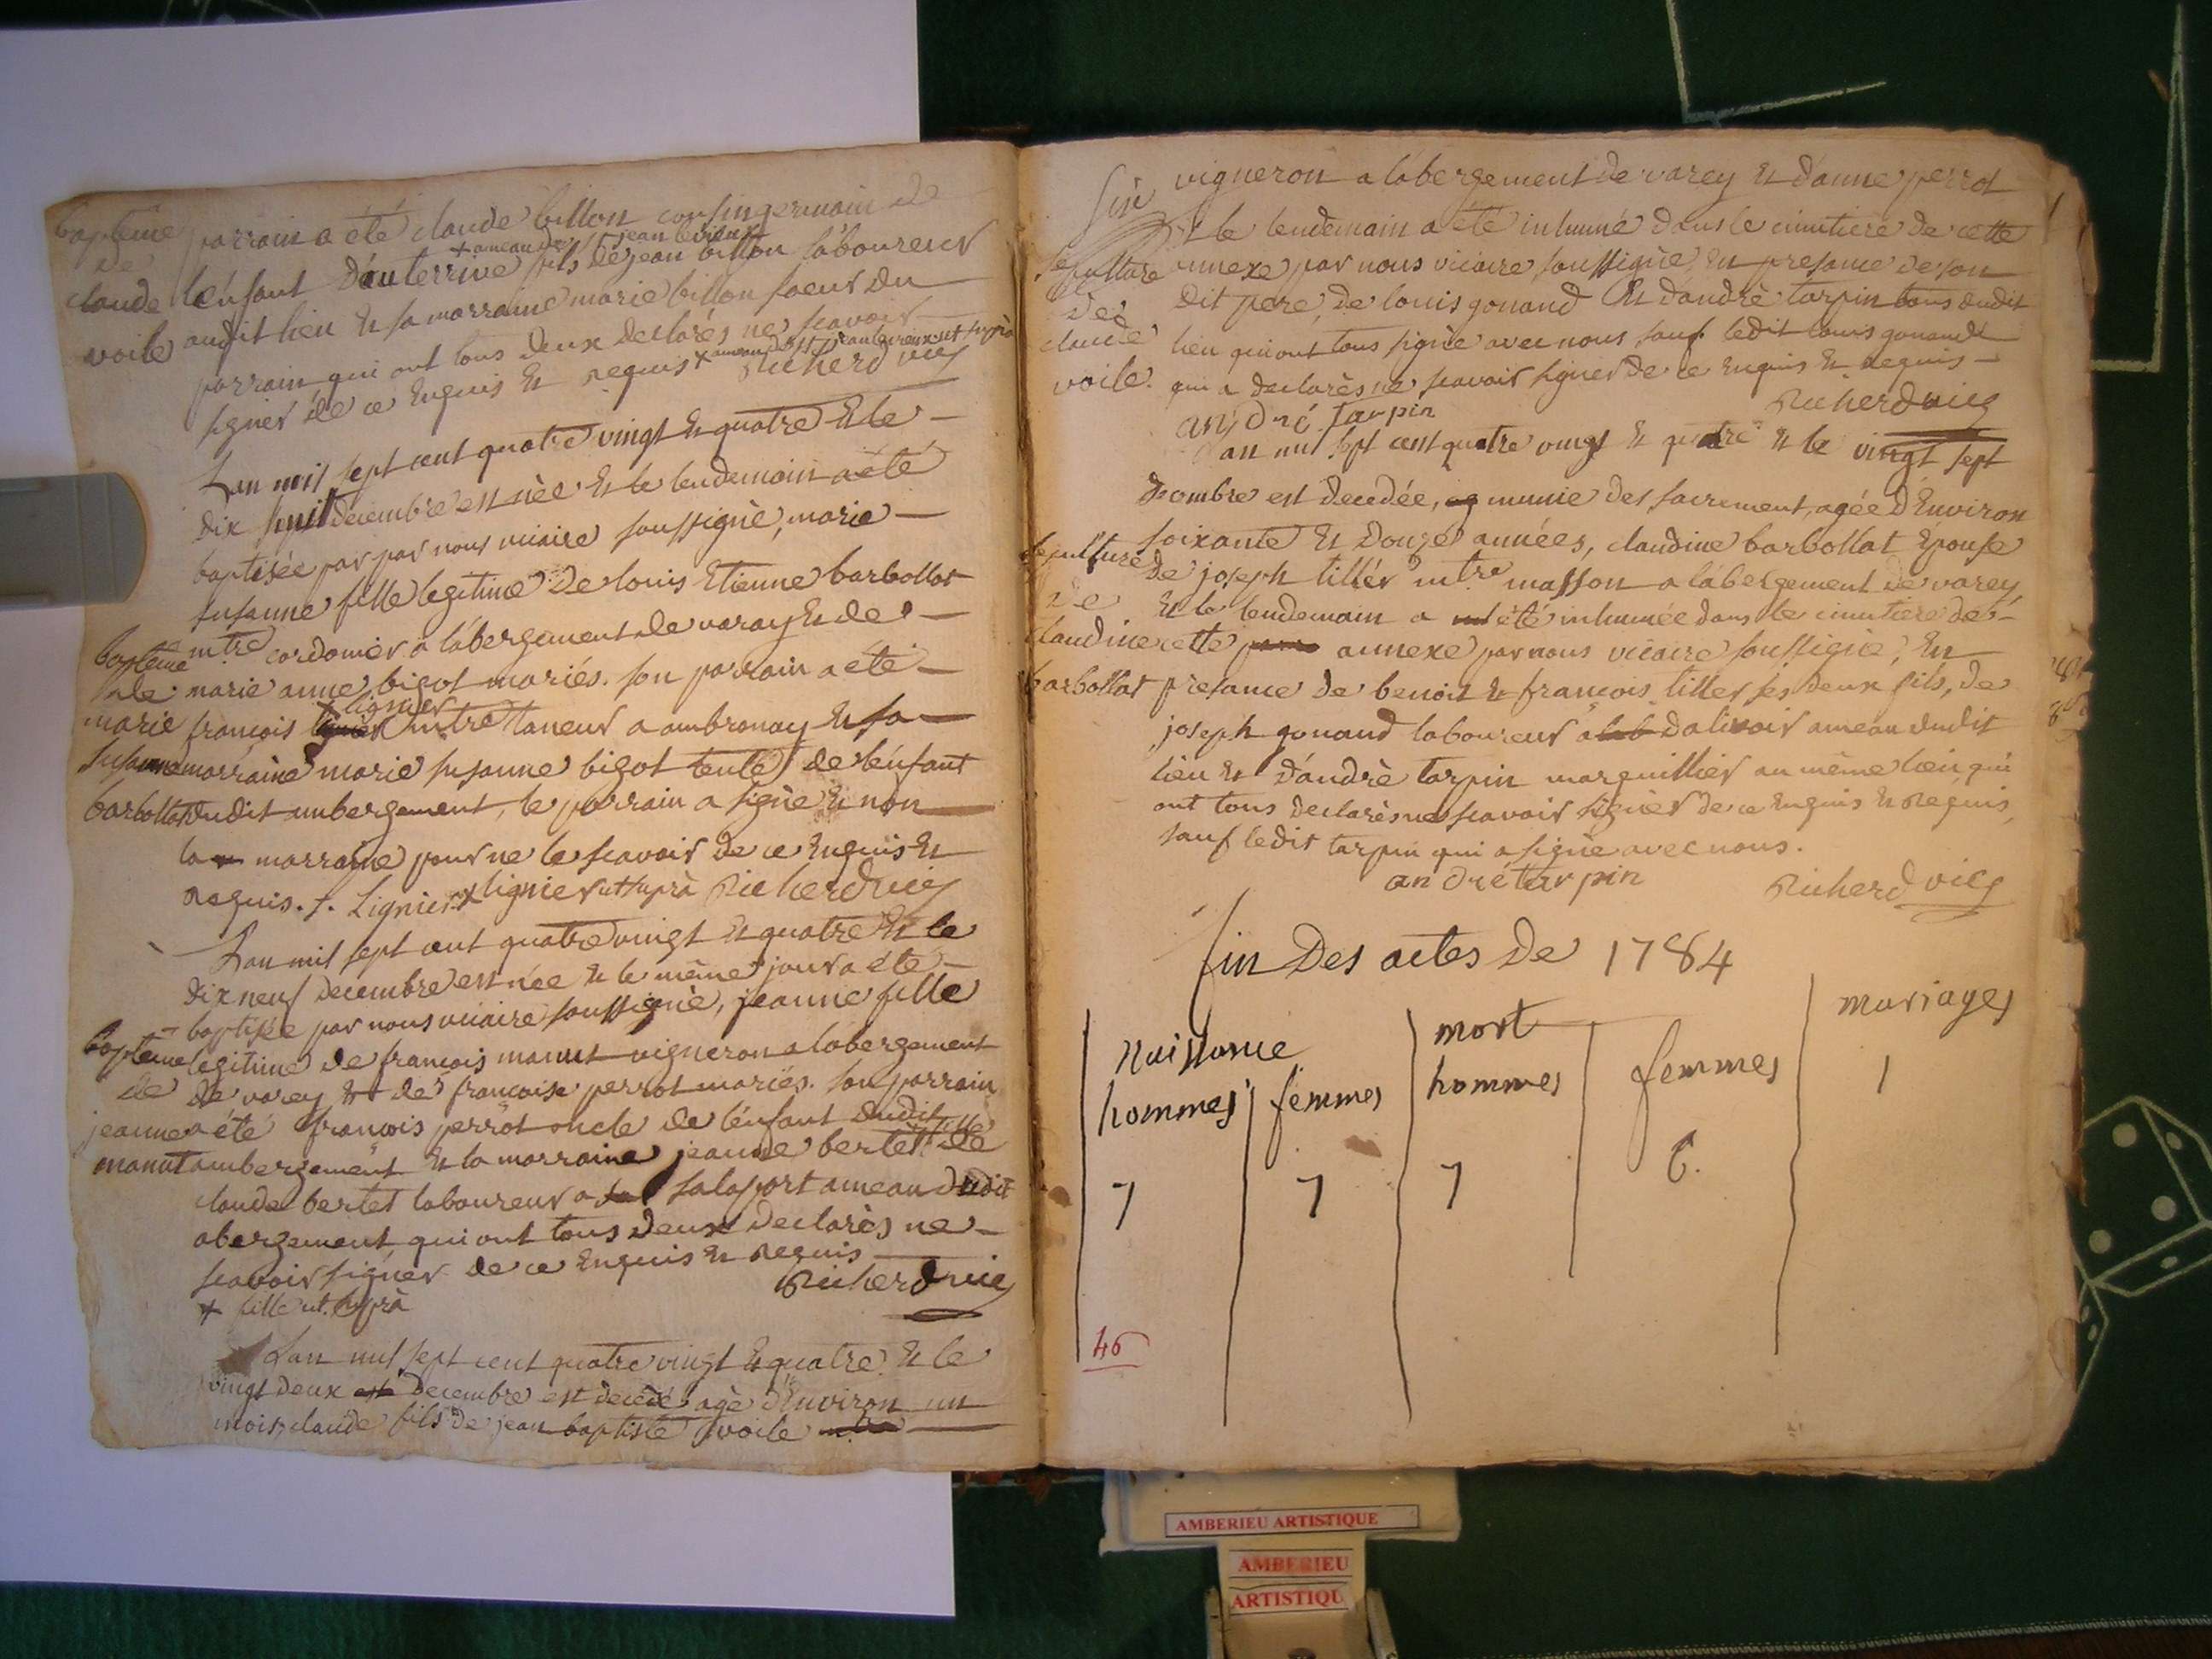 baptême
de
claude
voile
parrain a été claude billon cousin germain de
l'enfant d'auterrive fils de jean billon laboureur
+ ameau de st jean le vieux
audit lieu Et sa marraine marie billon soeur du
parrain qui ont tous deux declarés ne scavoir
signer de ce Enquis Et requis + ameau de st jean le vieux ut suprà
Richerd vic
Lan mil sept cent quatre vingt Et quatre Et le
dix huit decembre est née Et le lendemain a été
baptisée par par nous vicaire soussigné, marie
susanne fille legitime de louis Etienne barbollat
mtre cordonier a l'abergement de varey Et de
marie anne bigot mariés. son parrain a été
françois lignier mtre taneur a ambronay Et sa
marraine marie susanne bigot tente de l'enfant
dudit ambergement, le parrain a signé Et non
la marraine pour ne le scavoir de ce Enquis Et
requis. f. Lignier + lignier ut suprà Richerd vic
baptême
de
marie
susanne
barbollat
Lan mil sept cent quatre vingt Et quatre Et le
dix neuf decembre est née Et le même jour a été
baptisée par nous vicaire soussigné, jeanne fille
legitime de françois manut vigneron a l'abergement
de varey Et de françoise perrot mariés. son parrain
a été françois perrot oncle de l'enfant dudit
ambergement Et la marraine jeanne bertet + fille de
claude bertet laboureur a salaport ameau dudit
abergement, qui ont tous deux declarés ne
scavoir signer de ce Enquis Et requis
Richerd vic
+ fille ut suprà
baptême
de
jeanne
manut
Lan mil sept cent quatre vingt Et quatre Et le
vingt deux est decembre est decedé agé d'Environ un
mois, claude fils de jean baptiste voile
vigneron a l'abergement de varey Et d'anne perrot
Et le lendemain a été inhumé dans le cimetiere de cette
annexe par nous vicaire soussigné, En presance de son
dit pere, de louis gonand Et d'andré tarpin tous dudit
lieu qui ont tous signé avec nous sauf ledit louis gonand
qui a declarés ne scavoir signer de ce Enquis Et requis
andré tarpin
Richerd vicg
sepulture
de
claude
voile.
Lan mil sept cent quatre vingt Et quatre Et le vingt sept
decembre est decedée, munie des sacrement, agée d'Environ
soixante Et douze années, claudine barbollat Épouse
de joseph tiller mtre masson a l'abergement de varey,
Et le lendemain a été inhumée dans le cimetiere de
cette annexe par nous vicaire soussigné, En
presance de benoit Et françois tiller ses deux fils, de
joseph gonand laboureur a dalivoir ameau dudit
lieu Et d'andrè tarpin marguillier au même lieu, qui
ont tous declarés ne scavoir signer de ce Enquis Et Requis,
sauf ledit tarpin qui a signé avec nous.
andré tarpin
Richerd vicg
sepulture
de
claudine
barbollat
fin Des actes de 1784
Naissance
mort
mariages
hommes
femmes
hommes
femmes
1
7
7
7
6.
46
AMBERIEU ARTISTIQUE
AMBERIEU
ARTISTIQU